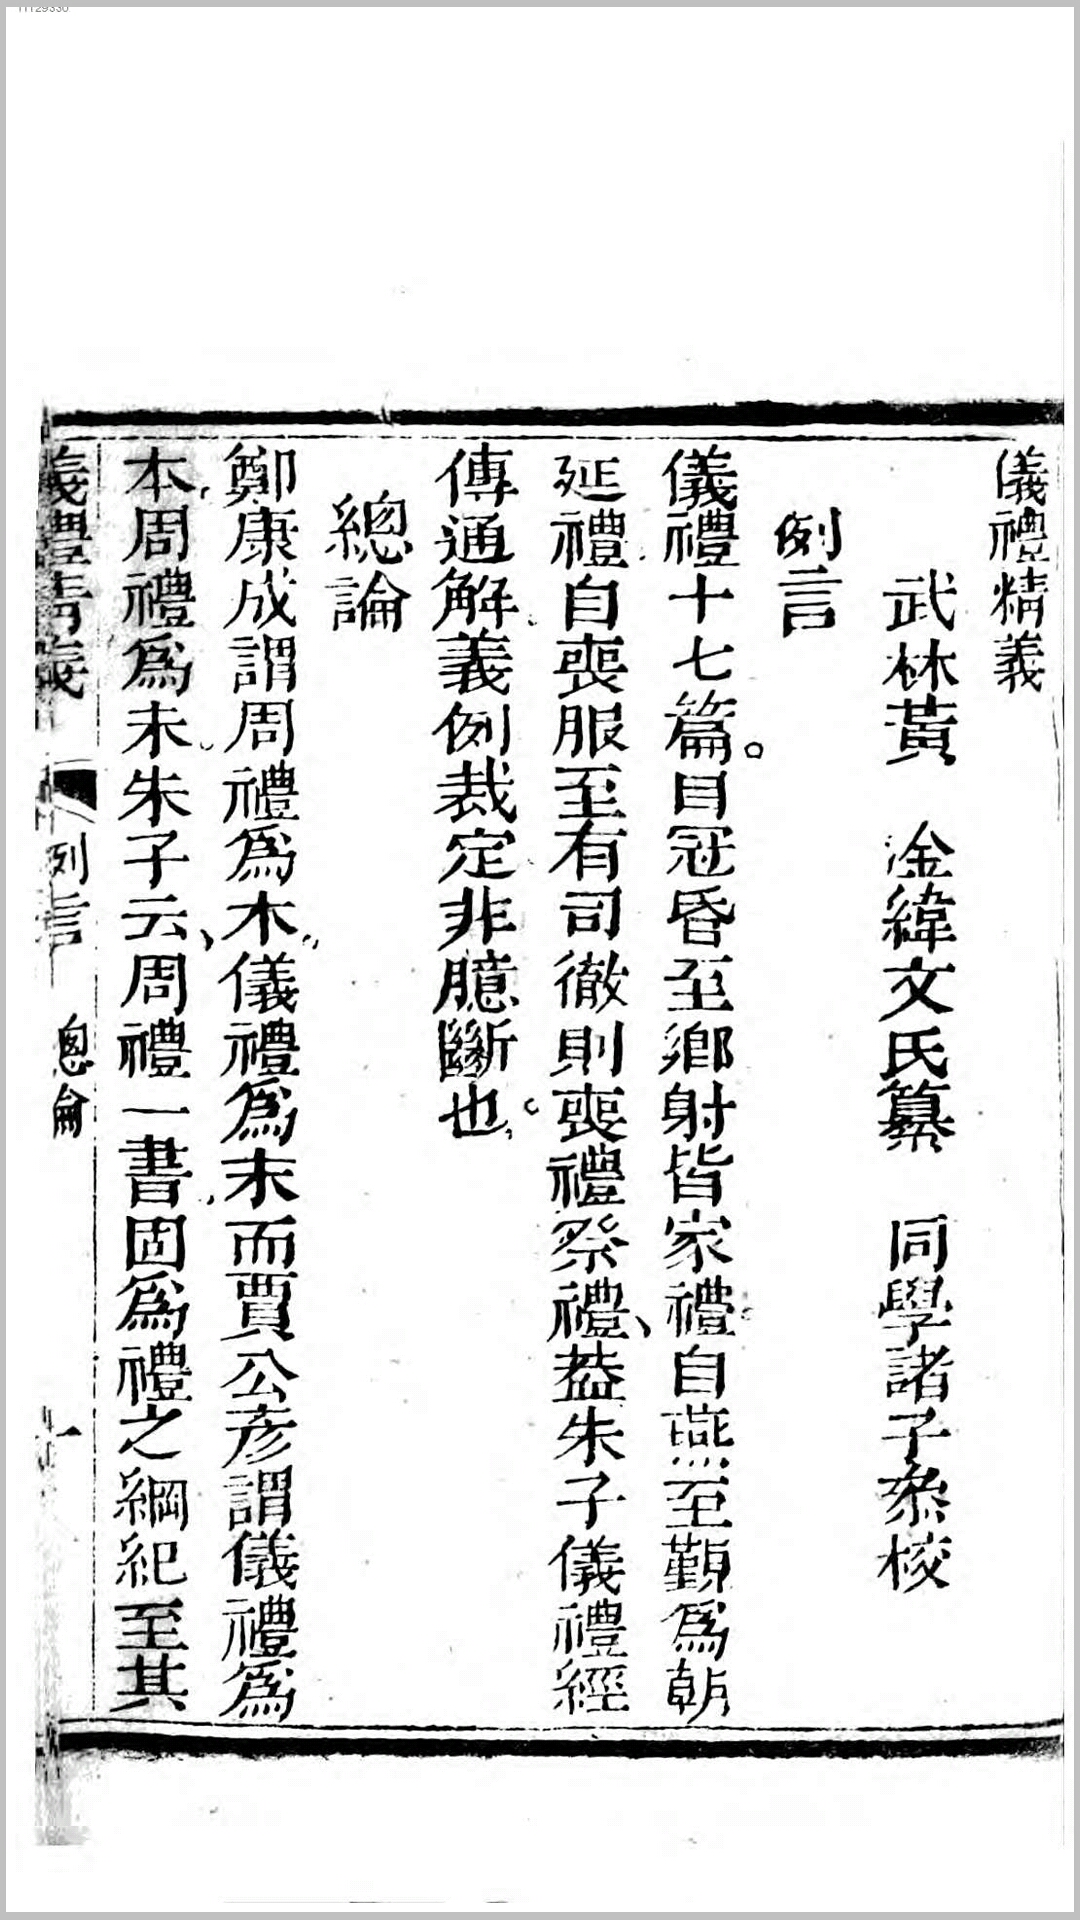 儀禮精義
武林黃　淦緯文氏纂　同學諸子叅校
例言
儀禮十七篇。目冠昏至鄉射皆家禮自燕至覲為朝
延禮自喪服至有司徹則喪禮祭禮、葢朱子儀禮經
傳通解義例裁定非臆斷也
總論
鄭康成謂周禮為本儀禮為末而賈公彥謂儀禮為
本周禮為末朱子云、周禮一書固為禮之綱紀至其
儀禮精義　例言　總論　一